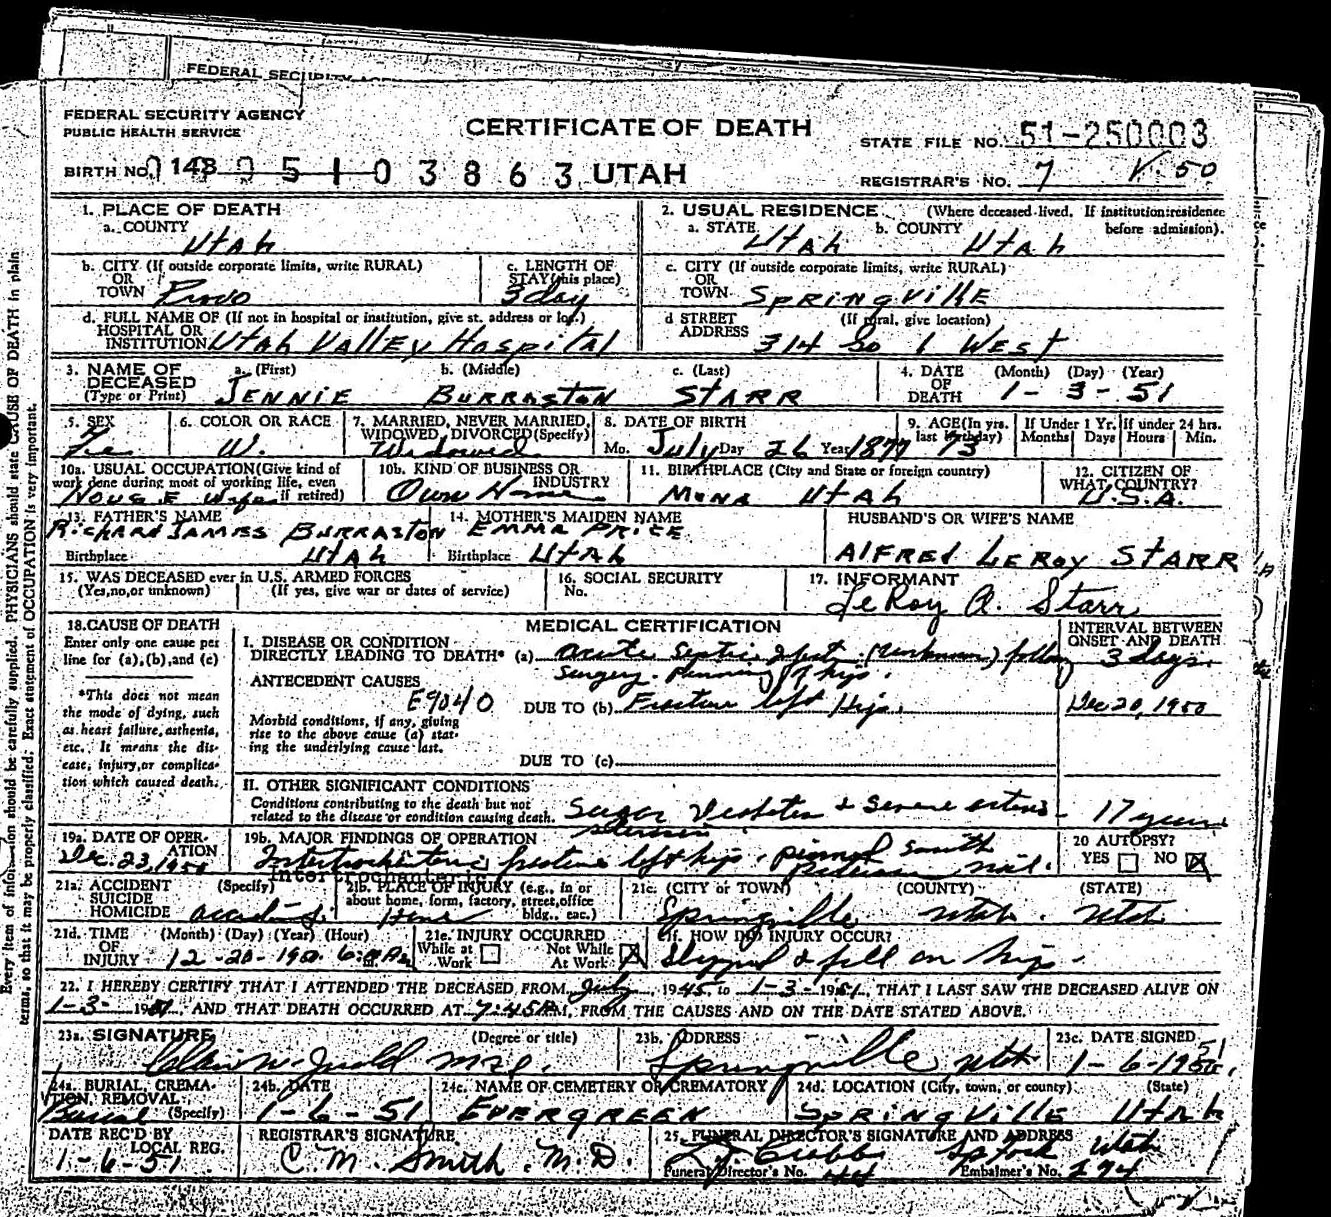 FEDERAL SECURITY AGENCY
PUBLIC HEALTH SERVICE
CERTIFICATE OF DEATH
STATE FILE NO. 51-250003
BIRTH NO. 143 9 5 1 0 3 8 6 3 UTAH
REGISTRAR'S NO. 7 V. 50
1. PLACE OF DEATH
a. COUNTY Utah
2. USUAL RESIDENCE (Where deceased lived. If institution: residence before admission).
a. STATE Utah b. COUNTY Utah
b. CITY (If outside corporate limits, write RURAL) OR TOWN Provo
c. LENGTH OF STAY (this place) 3 day
c. CITY (If outside corporate limits, write RURAL) OR TOWN Springville
d. FULL NAME OF (If not in hospital or institution, give st. address or loc.) HOSPITAL OR INSTITUTION Utah Valley Hospital
d STREET ADDRESS (If rural, give location) 314 So 1 West
3. NAME OF DECEASED (Type or Print)
a. (First) Jennie b. (Middle) Burraston c. (Last) Starr
4. DATE OF DEATH (Month) (Day) (Year) 1-3-51
5. SEX Fe
6. COLOR OR RACE W.
7. MARRIED, NEVER MARRIED, WIDOWED, DIVORCED (Specify) Widowed
8. DATE OF BIRTH Mo. July Day 26 Year 1877
9. AGE (In yrs. last birthday) 73
If Under 1 Yr. Months Days
If under 24 hrs. Hours Min.
10a. USUAL OCCUPATION (Give kind of work done during most of working life, even if retired) House wife
10b. KIND OF BUSINESS OR INDUSTRY Own Home
11. BIRTHPLACE (City and State or foreign country) Mona Utah
12. CITIZEN OF WHAT COUNTRY? U.S.A.
13. FATHER'S NAME Richard James Burraston
Birthplace Utah
14. MOTHER'S MAIDEN NAME Emma Price
Birthplace Utah
HUSBAND'S OR WIFE'S NAME
Alfred LeRoy Starr
15. WAS DECEASED ever in U.S. ARMED FORCES
(Yes, no, or unknown) (If yes, give war or dates of service)
16. SOCIAL SECURITY No.
17. INFORMANT LeRoy A. Starr
18. CAUSE OF DEATH
Enter only one cause per line for (a), (b), and (c)
*This does not mean the mode of dying, such as heart failure, asthenia, etc. It means the disease, injury, or complication which caused death.
MEDICAL CERTIFICATION
INTERVAL BETWEEN ONSET AND DEATH
I. DISEASE OR CONDITION DIRECTLY LEADING TO DEATH* (a) Acute septic (unknown) follow 3 days.
Surgery. Pinning of hip.
ANTECEDENT CAUSES E9040
Morbid conditions, if any, giving rise to the above cause (a) stating the underlying cause last.
DUE TO (b) Fracture left Hip. Dec 20, 1950
DUE TO (c)
II. OTHER SIGNIFICANT CONDITIONS
Conditions contributing to the death but not related to the disease or condition causing death. Sugar Diabetes & Severe 17 years
19a. DATE OF OPERATION Dec. 23, 1950
19b. MAJOR FINDINGS OF OPERATION
Intertrochanteric fracture left hip. pinned smith peterson nail.
Intertrochanteric
20 AUTOPSY? YES NO X
21a. ACCIDENT SUICIDE HOMICIDE (Specify) accident.
21b. PLACE OF INJURY (e.g., in or about home, form, factory, street, office bldg., eac.) Home
21c. (CITY or TOWN) (COUNTY) (STATE)
Springville Utah. Utah
21d. TIME OF INJURY (Month) (Day) (Year) (Hour) 12-20-1950
21e. INJURY OCCURRED
While at Work Not While At Work X
21f. HOW DID INJURY OCCUR?
Slipped & fell on hip.
22. I HEREBY CERTIFY THAT I ATTENDED THE DECEASED FROM July, 1945, to 1-3-1951, THAT I LAST SAW THE DECEASED ALIVE ON
1-3-1951, AND THAT DEATH OCCURRED AT 7:45 M, FROM THE CAUSES AND ON THE DATE STATED ABOVE.
23a. SIGNATURE (Degree or title)
23b. ADDRESS Springville Utah
23c. DATE SIGNED 1-6-1951
24a. BURIAL, CREMATION, REMOVAL: (Specify) Burial
24b. DATE 1-6-51
24c. NAME OF CEMETERY OR CREMATORY Evergreen
24d. LOCATION (City, town, or county) (State) Springville Utah
DATE REC'D BY LOCAL REG. 1-6-51
REGISTRAR'S SIGNATURE C. M. Smith, M.D.
25. FUNERAL DIRECTOR'S SIGNATURE AND ADDRESS Utah
Funeral Director's No. Embalmer's No. 294
Every item of information should be carefully supplied. PHYSICIANS should state CAUSE OF DEATH in plain
terms, so that it may be properly classified. Exact statement of OCCUPATION is very important.